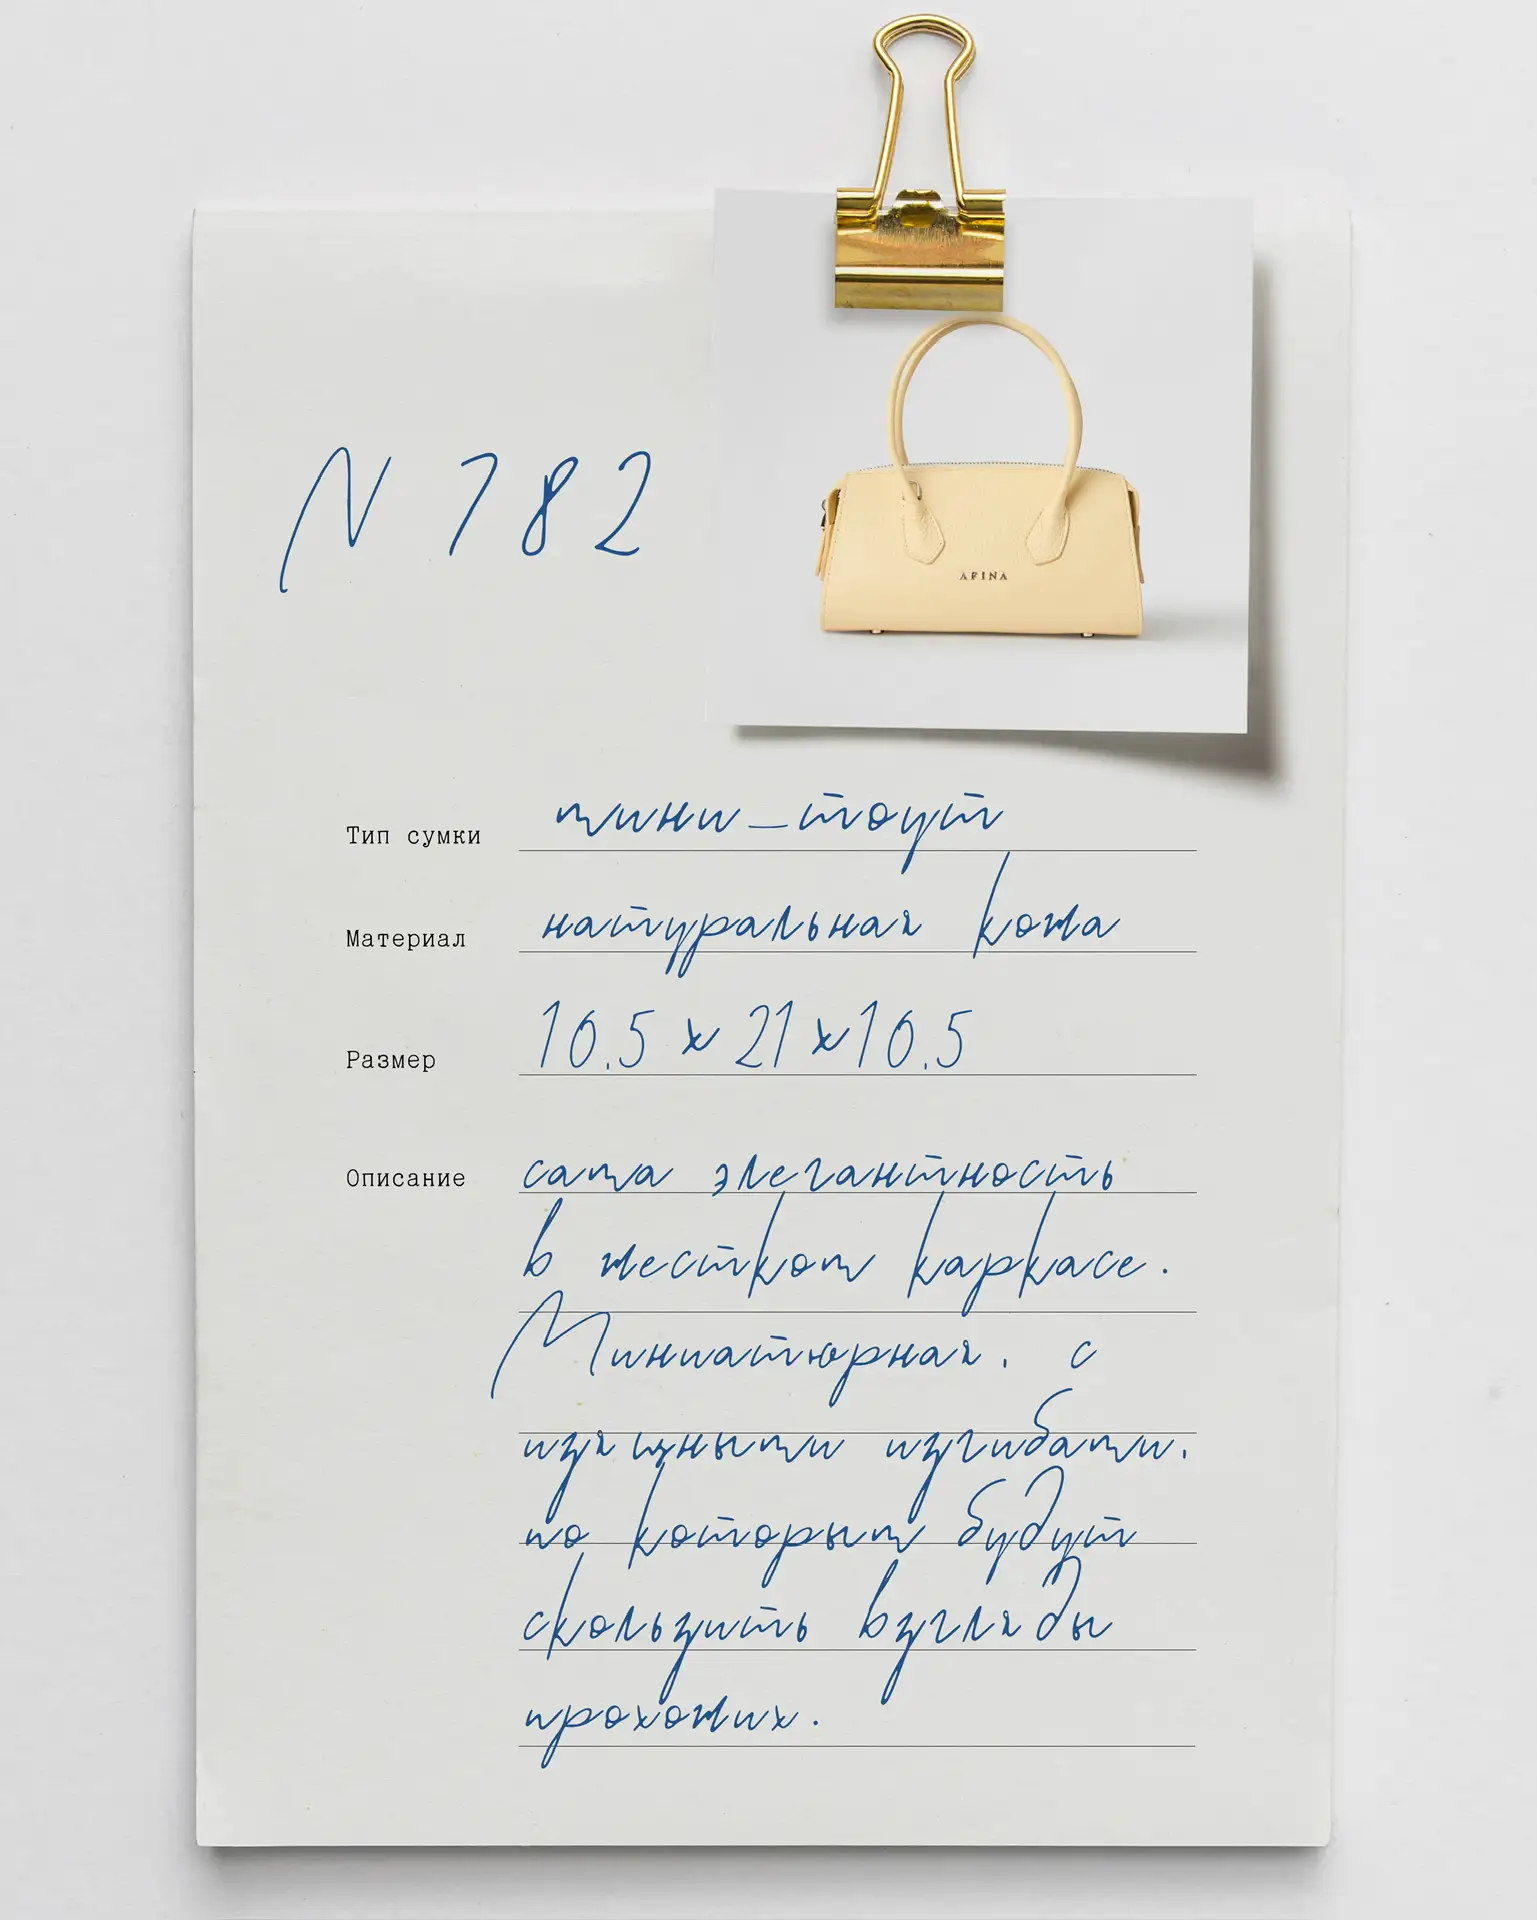 N 782
AFINA
Тип сумки мини-тоут
Материал натуральная кожа
Размер 10.5 х 21 х 10.5
Описание сама элегантность
в жестком каркасе.
Миниатюрная, с
изящными изгибами,
по которым будут
скользить взгляды
прохожих.